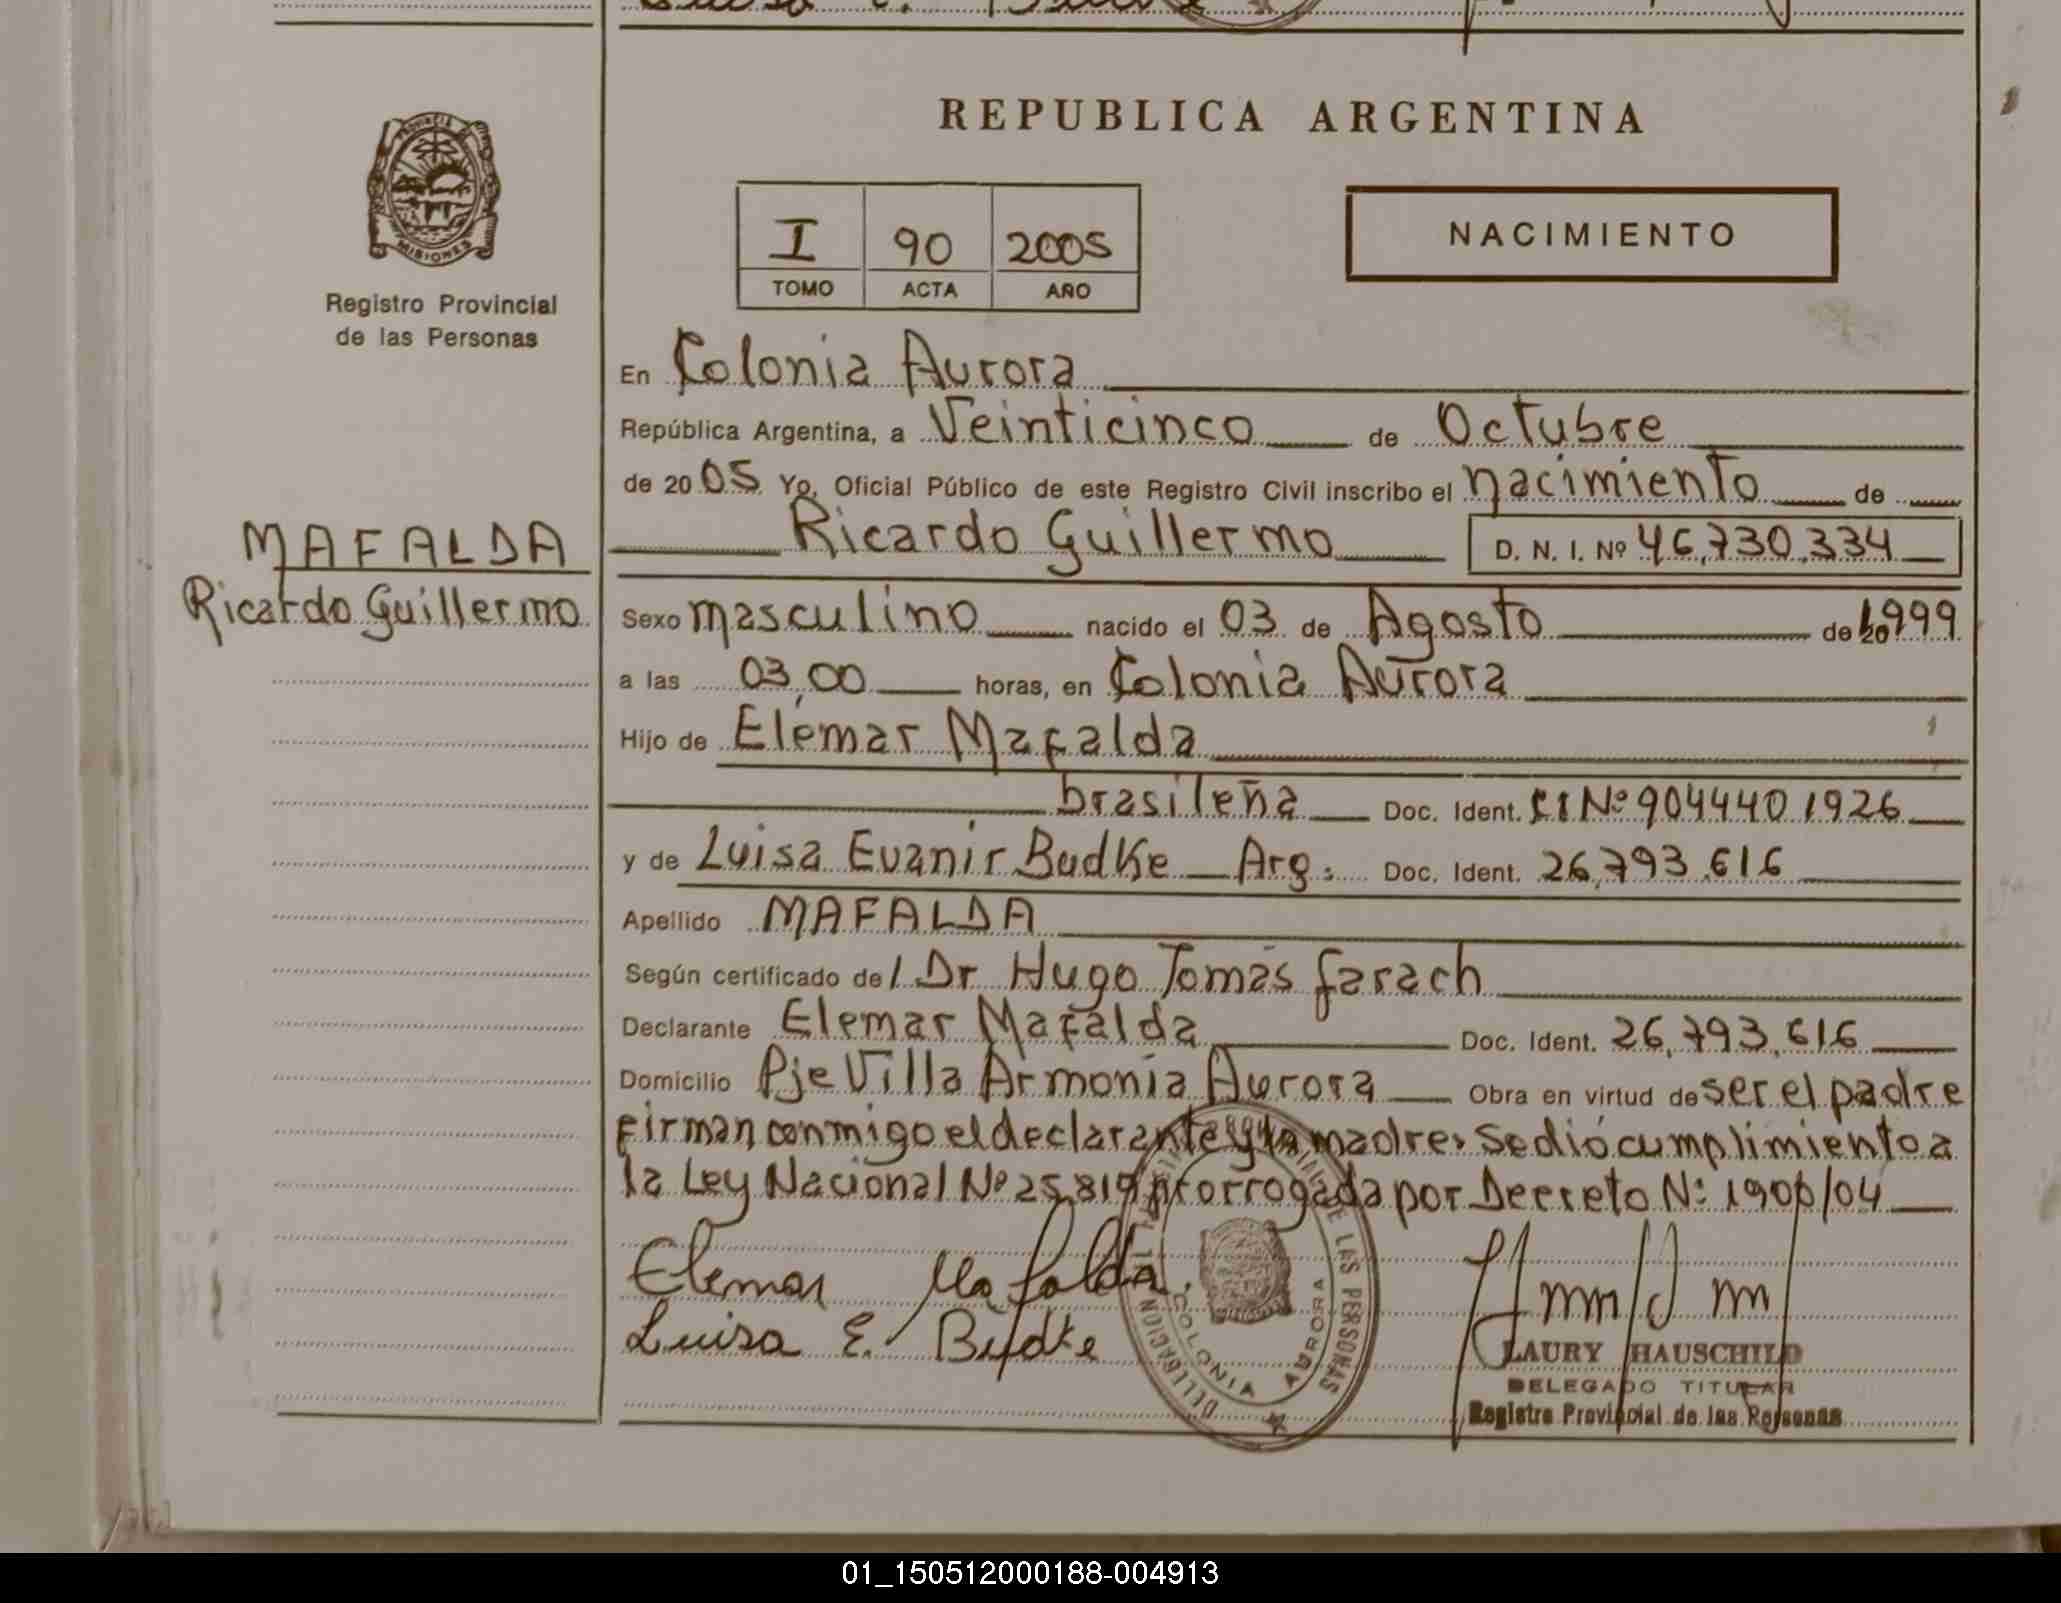 REPUBLICA ARGENTINA
PROVINCIA DE
MISIONES
Registro Provincial
de las Personas
I 90 2005
TOMO ACTA AÑO
NACIMIENTO
En Colonia Aurora
República Argentina, a Veinticinco de Octubre
de 20 05 Yo, Oficial Público de este Registro Civil inscribo el nacimiento de
Ricardo Guillermo D. N. I. Nº 46,730,334
MAFALDA
Ricardo Guillermo
Sexo masculino nacido el 03 de Agosto de 1999
a las 03,00 horas, en Colonia Aurora
Hijo de Elemar Mafalda
brasileña Doc. Ident. CI Nº 9044401926
y de Luisa Evanir Budke Arg: Doc. Ident. 26,793,616
Apellido MAFALDA
Según certificado de l Dr Hugo Tomás Farach
Declarante Elemar Mafalda Doc. Ident. 26,793,616
Domicilio Pje Villa Armonía Aurora Obra en virtud de ser el padre
firman conmigo el declarante y la madre, se dió cumplimiento a
la Ley Nacional Nº 25,819 prorrogada por Decreto Nº 1900/04
Elemar Mafalda.
Luisa E. Budke
DE LAS PERSONAS
DELEGACION
COLONIA AURORA
LAURY HAUSCHILD
DELEGADO TITULAR
Registro Provincial de las Personas
01_150512000188-004913